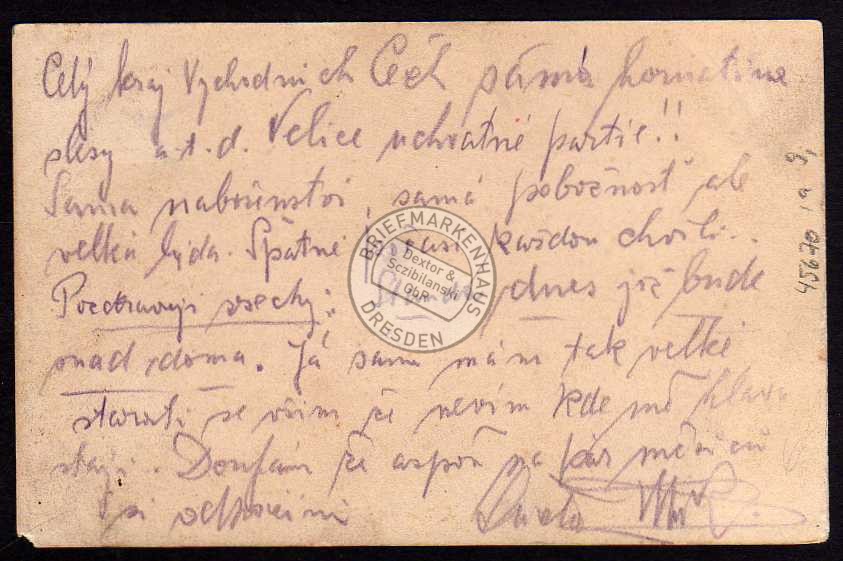 Celý kraj Východních Čech samá hornatina
lesy a.t.d. Velice uchvatné partie!!
Sama naboženství, samá pobožnost ale
velká byda. Špatné časi každou chvíli..
Pozdravuji vsechy: dnes již bude
snad doma. Já sama mám tak velké
starosti se vším že nevím kde mě hlava
stojí. Doufám že aspoň na pár měsíců
si odpočinu
BRIEFMARKENHAUS
Dextor &
Sczibilanski
GbR
DRESDEN
45670 1a 9,